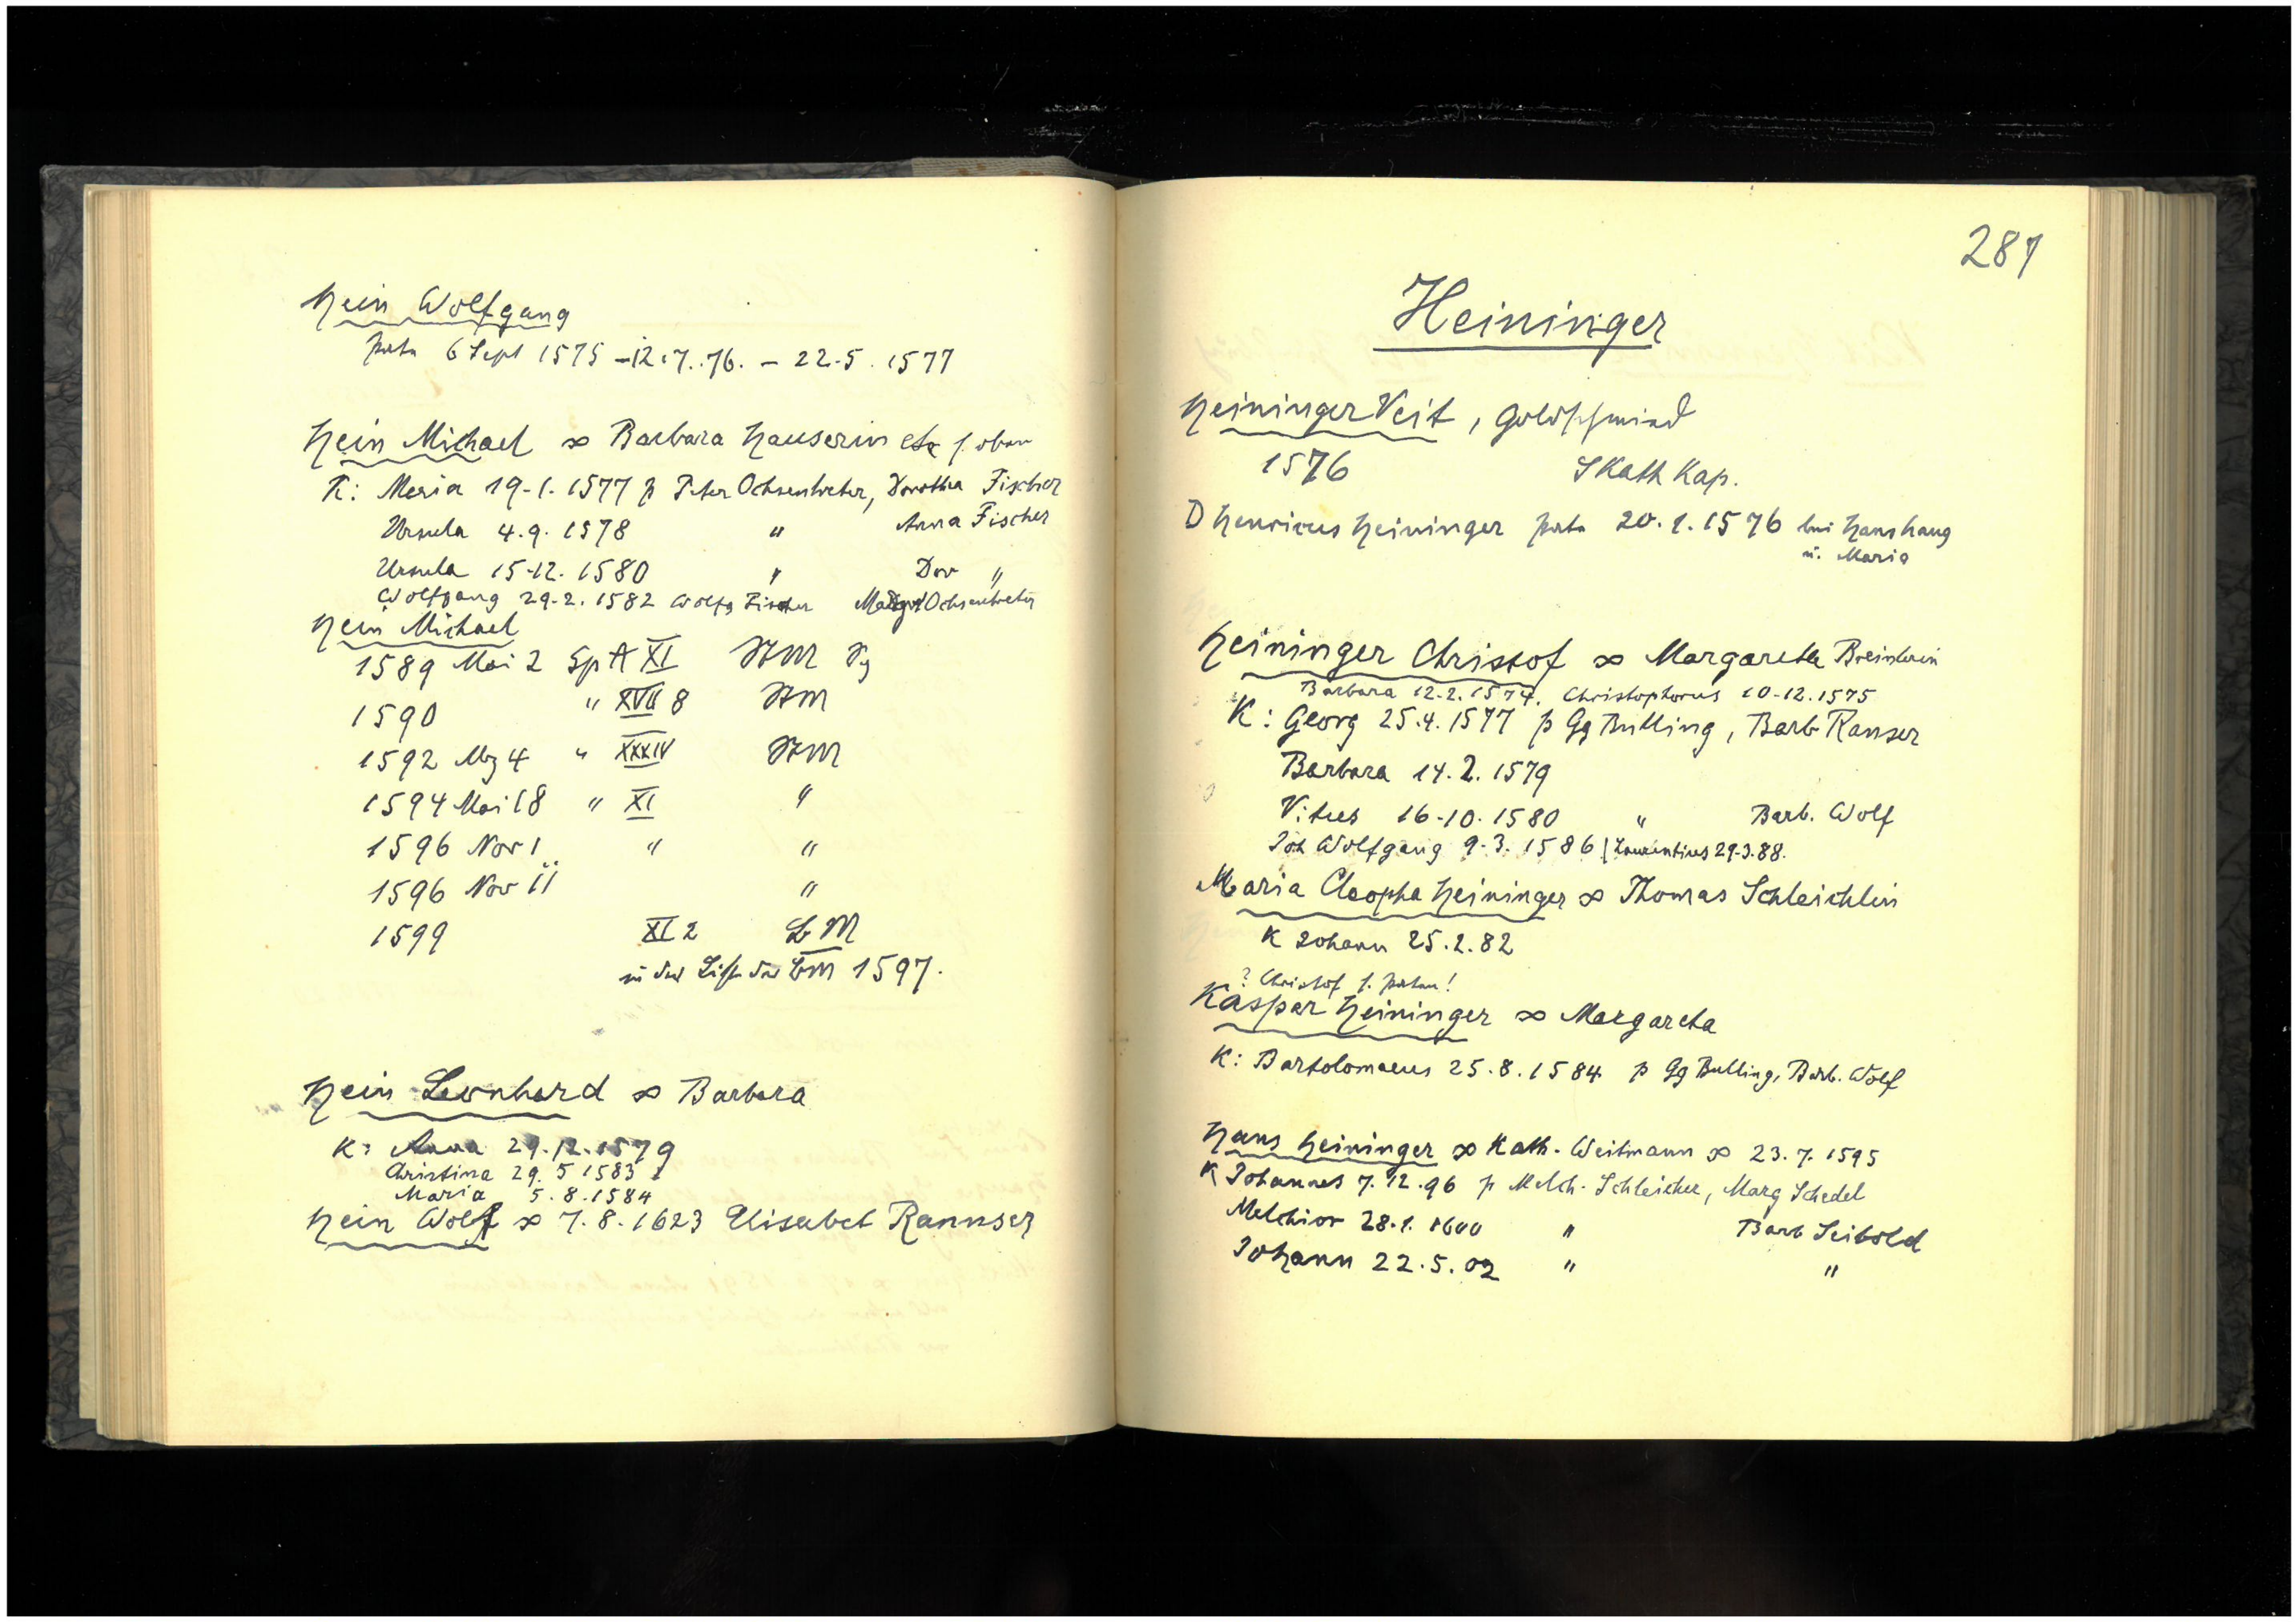 Hein Wolfgang
Pate 6 Sept 1575 – 12.7.76. – 22.5.1577
Hein Michael ∞ Barbara Hauserin etc s. oben
K: Maria 19.1.1577 p Peter Ochsentreter, Dorothea Fischer
Ursula 4.9.1578 " Anna Fischer
Ursula 15.12.1580 " Dor "
Wolfgang 29.2.1582 Wolfg Fischer Ochsentreter
Hein Michael
1589 Mai 2 Sp A XI
1590 " XVII 8
1592 Mz 4 " XXXIV
1594 Mai 18 " XI "
1596 Nov 1 " "
1596 Nov 11 "
1599 XI 2 LM
in der Liste der 1597.
Hein Leonhard ∞ Barbara
K: Anna 29.12.1579
Christina 29.5 1583
Maria 5.8.1584
Hein Wolf ∞ 7.8.1623 Elisabet Rannser
287
Heininger
Heininger Veit, Goldschmied
1576 S Kath Kap.
D Henricus Heininger Pate 20.1.1576 bei Hans Haug
u. Maria
Heininger Christof ∞ Margaretha
Barbara 12.2.1574, Christophorus 10.12.1575
K: Georg 25.4.1577 p Gg Bulling, Barb Ranser
Barbara 14.2.1579
Vitus 16.10.1580 " Barb. Wolf
Joh Wolfgang 9.3.1586 | Laurentius 29.3.88.
Maria Cleopha Heininger ∞ Thomas Schleichlin
K Johann 25.2.82
? Christof s. Paten!
Kaspar Heininger ∞ Margareta
K: Bartolomaeus 25.8.1584 p Gg Bulling, Barb. Wolf
Hans Heininger ∞ Kath. Weitmann ∞ 23.7.1595
K Johannes 7.12.96 p Melch. Schleicher, Marg Schedel
Melchior 28.1.1600 " Barb Seibold
Johann 22.5.02 " "